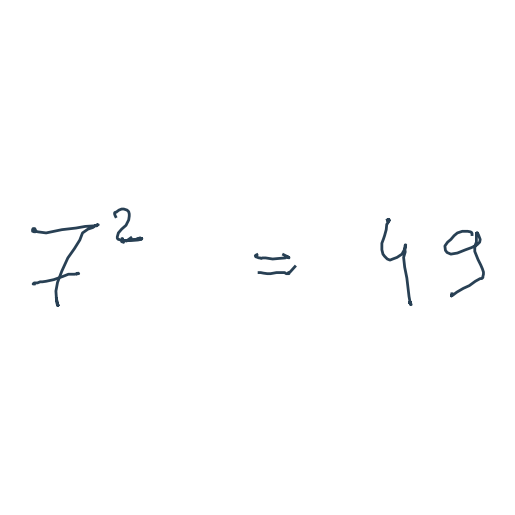 7² = 49